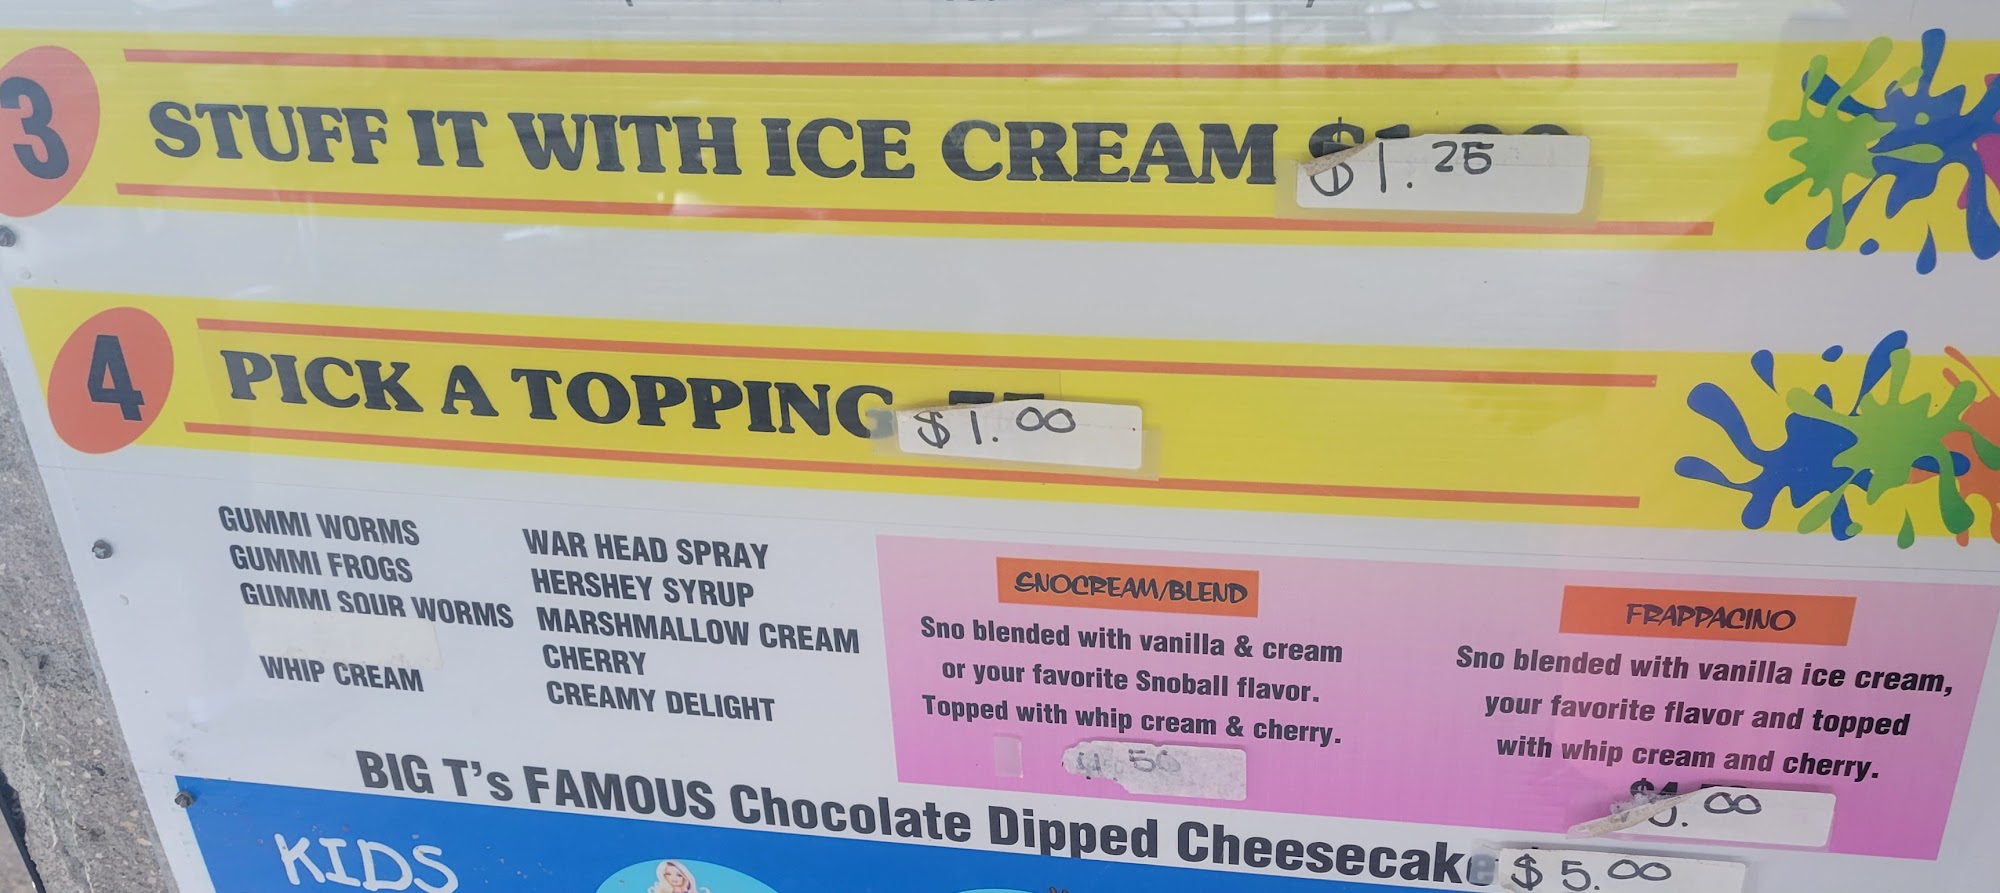 3
STUFF IT WITH ICE CREAM $1.25
4
PICK A TOPPING $1.00
GUMMI WORMS
GUMMI FROGS
GUMMI SOUR WORMS
WHIP CREAM
WAR HEAD SPRAY
HERSHEY SYRUP
MARSHMALLOW CREAM
CHERRY
CREAMY DELIGHT
SNOCREAM/BLEND
Sno blended with vanilla & cream
or your favorite Snoball flavor.
Topped with whip cream & cherry.
FRAPPACINO
Sno blended with vanilla ice cream,
your favorite flavor and topped
with whip cream and cherry.
BIG T's FAMOUS Chocolate Dipped Cheesecake $5.00
KIDS